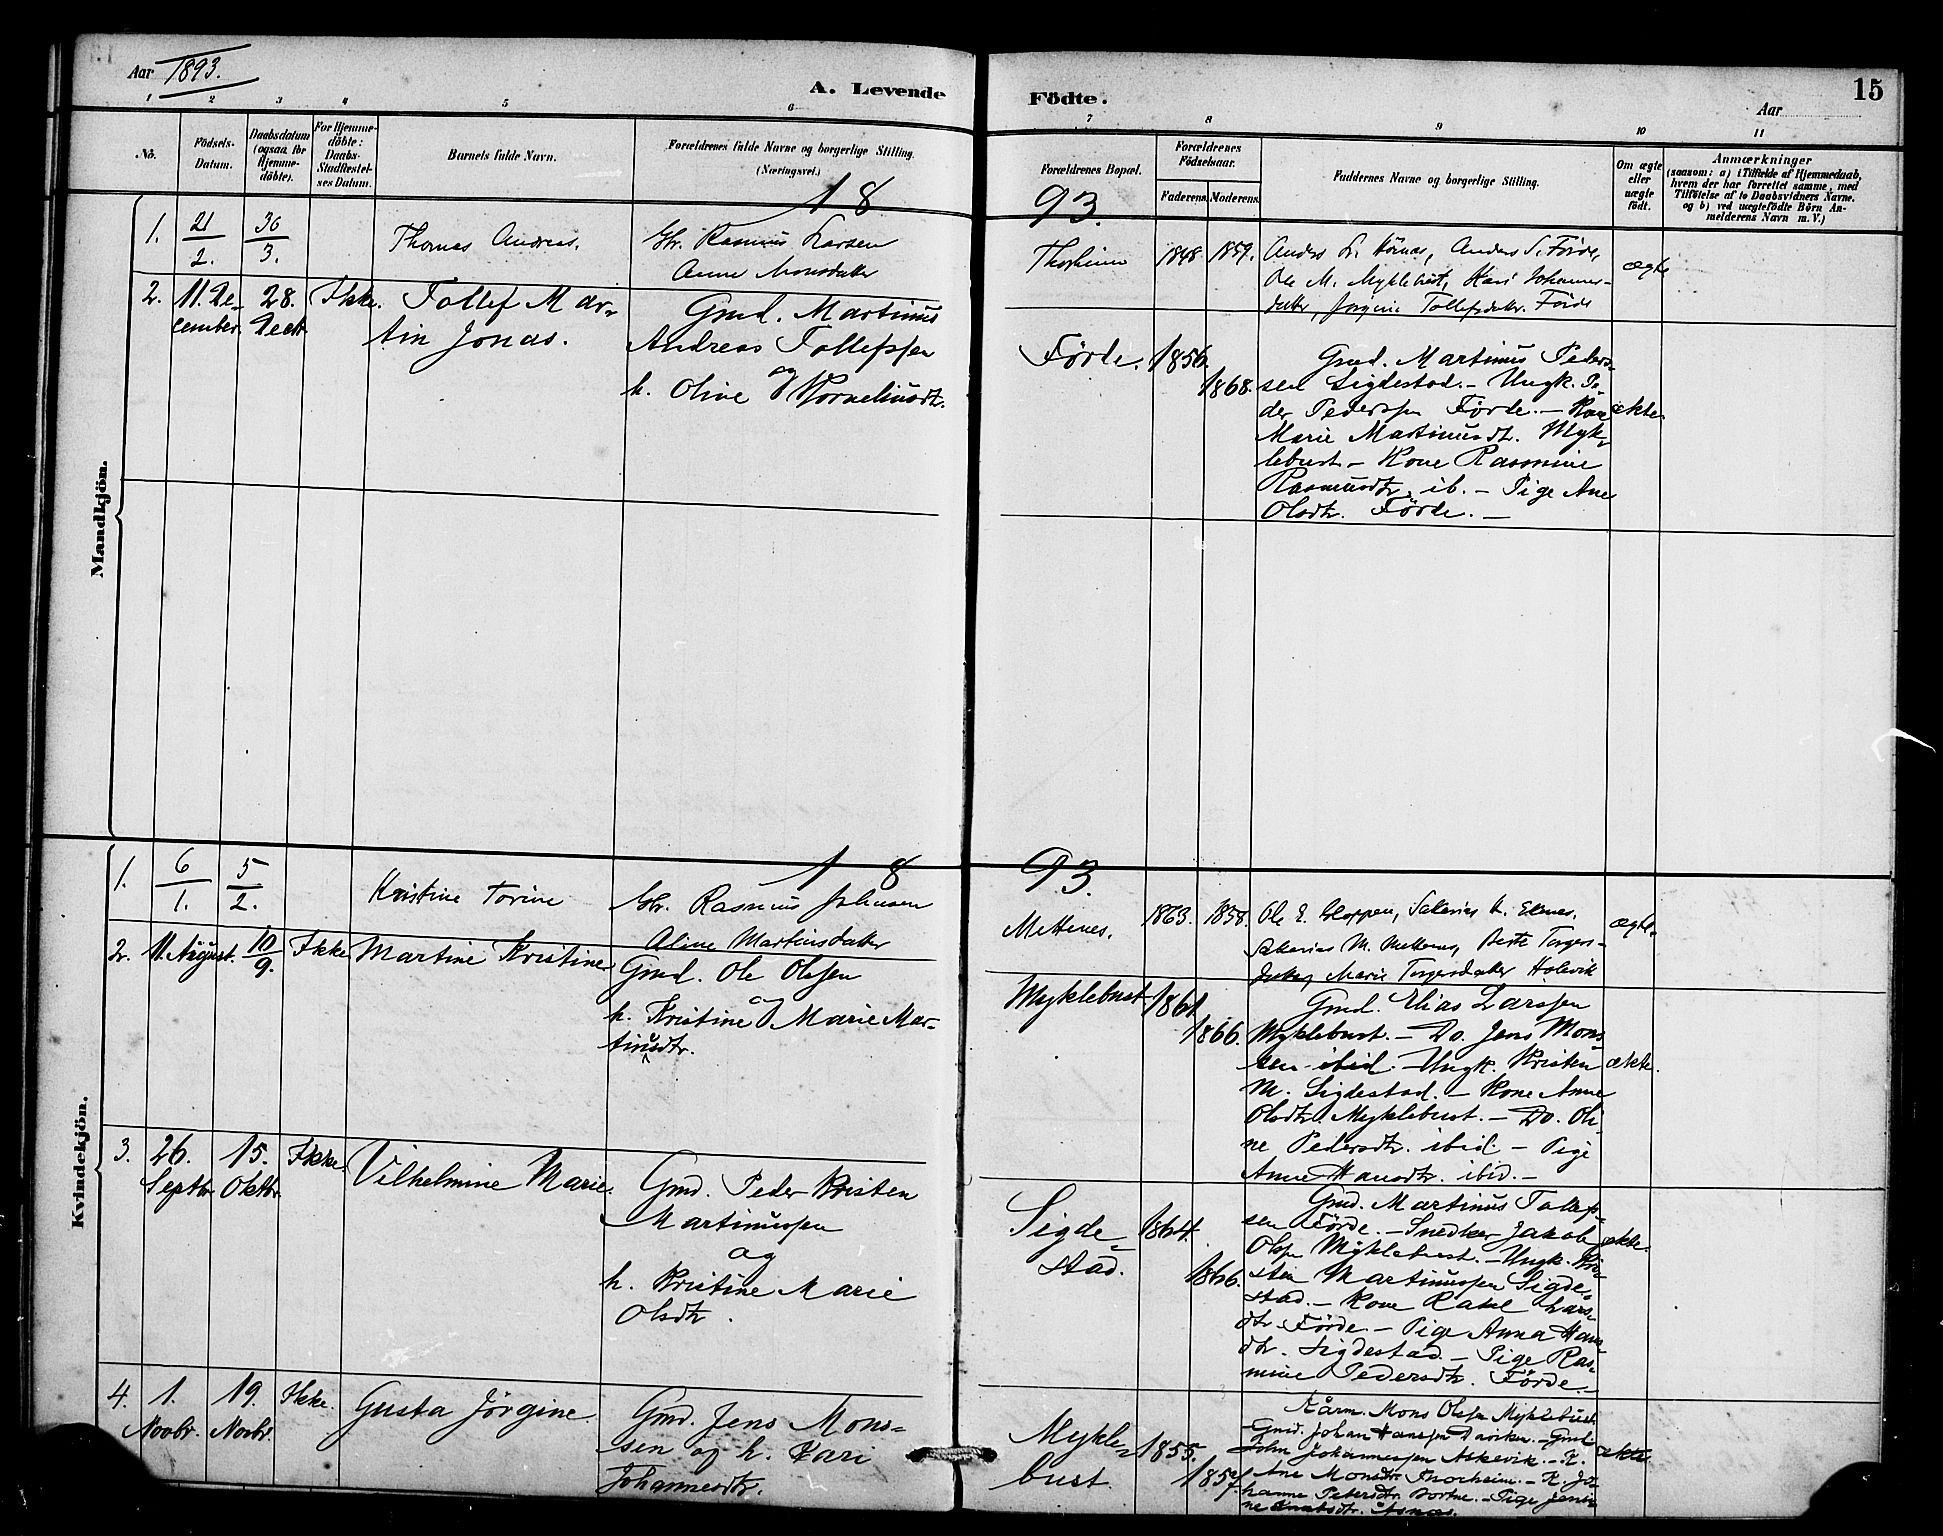 Aar 1893.
A. Levende Födte.
Aar
15
1 2 3 4 5 6 7 8 9 10 11
No.
Födsels-
Datum.
Daabsdatum
(ogsaa for
Hjemme-
döbte).
For Hjemme-
döbte:
Daabs-
Stadfæstel-
ses Datum.
Barnets fulde Navn.
Forældrenes fulde Navne og borgerlige Stilling.
(Næringsvei.)
Forældrenes Bopæl.
Forældrenes
Födselsaar.
Faderens. Moderens.
Faddernes Navne og borgerlige Stilling.
Om ægte
eller
uægte
født.
Anmærkninger
(saasom: a) i Tilfælde af Hjemmedaab,
hvem der har forrettet samme, med
Tilføielse af to Daabsvidners Navne.
og b) ved uægtefødte Börn An-
melderens Navn m. V.)
18 93.
Mandkjön.
1.
21
2.
30
3.
Thomas Andreas.
Gbr. Rasmus Larsen
Anne Monsdatter
Thorheim
1848 1859.
Anders L. Hornæs, Anders S. Förde,
Ole M. Myklebust, Kari Johannes-
datter, Jorgine Tollefsdatter Förde
ægte
2.
11. De-
cember.
28.
Decbr.
Ikke.
Tollef Mar-
tin Jonas.
Gmd. Martinus
Andreas Tollefssen
og
h. Oline Korneliusdtr.
Førde.
1856.
1868.
Gmd. Martinus Peders-
sen Sigdestad. - Ungk. Pe-
der Pederssen Førde. - Kone
Marie Martinusdtr. Myk-
lebust. - Kone Rasmine
Rasmusdtr. ib. - Pige Ane
Olsdtr. Førde. -
ækte.
18 93.
Kvindekjön.
1.
6
1.
5
2.
Kristine Torine
Gbr. Rasmus Johnsen
Aline Martinsdatter
Mettenes.
1863. 1858.
Ole E. Gloppen, Sakarias
Sakarias M. Mettenes, Berte Torgers-
datter, Marie Torgersdatter Holevik
ægte.
2.
11. August.
10
9.
Ikke
Martine Kristine
Gmd. Ole Olssen
og
h. Kristine Marie Mar-
tinusdtr.
Myklebust.
1861.
1866.
Gmd. Elias Larssen
Myklebust. - Do. Jens Mons-
sen ibid. - Ungk. Kristen
M. Sigdestad. - Kone Anne
Olsdtr. Myklebust. - Do. Oli-
ne Pedersdtr. ibid. - Pige
Anne Hansdtr. ibid. -
ækte.
3.
26.
Septbr.
15.
Oktbr.
Ikke.
Vilhelmine Marie.
Gmd. Peder Kristen
Martinussen
og
h. Kristine Marie
Olsdtr.
Sigde-
stad.
1864.
1866.
Gmd. Martinus Tollefs-
sen Førde. - Snedker Jakob
Olssen Myklebust. - Ungk. Kri-
sten Martinussen Sigde-
stad. - Kone Rakel Lars-
dtr. Førde. - Pige Anna Hans-
dtr. Sigdestad. - Pige Ras-
mine Pedersdtr. Førde. -
ækte.
4.
1.
Novbr.
19.
Novbr.
Ikke.
Gusta Jörgine.
Gmd. Jens Mons-
sen og h. Kari
Johannesdtr.
Mykle-
bust.
1855.
1857.
Kårm. Mons Olssen Myklebust.
- Gmd. Johan Hanssen - Gmd.
John Johannessen Askevik. - K.
Ane Monsdtr. Thorheim. - K. Jo-
hanne Petersdtr. - Pige Jensi-
ne
ækte.